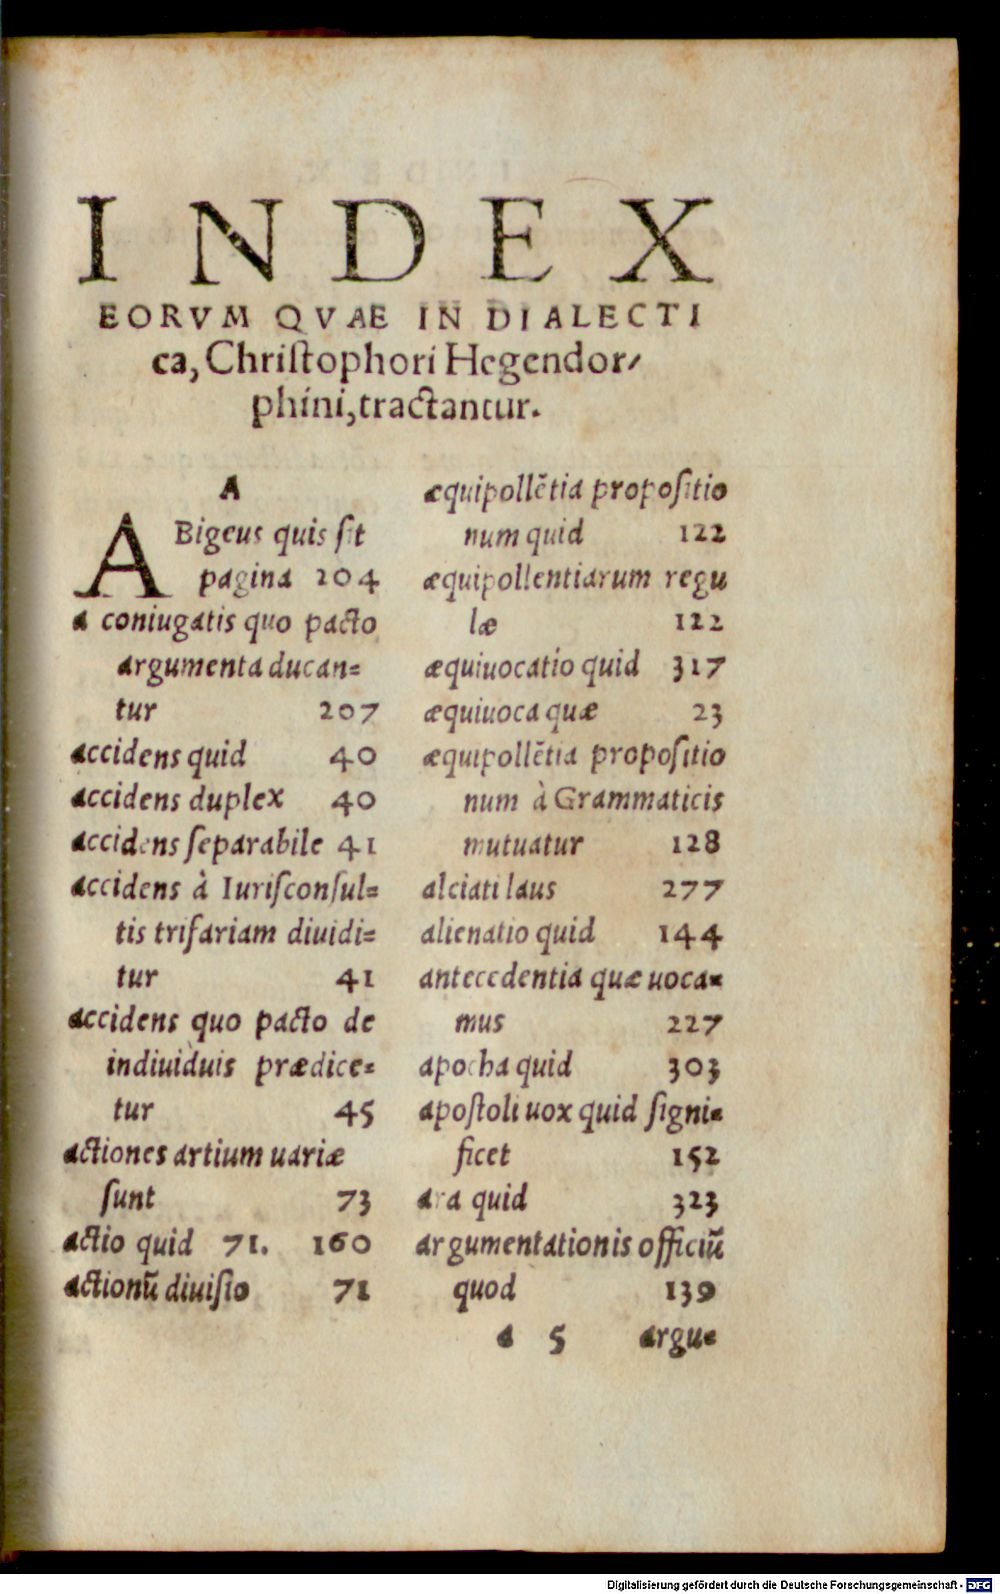 INDEX
EORVM QVAE IN DIALECTI
ca, Chriſtophori Hegendor-
phini, tractantur.
A
ABigeus quis ſit
pagina 204
a coniugatis quo pacto
argumenta ducan=
tur 207
accidens quid 40
accidens duplex 40
accidens ſeparabile 41
accidens à Iuriſconſul=
tis trifariam diuidi=
tur 41
accidens quo pacto de
indiuiduis prædice=
tur 45
actiones artium uariæ
ſunt 73
actio quid 71. 160
actionū diuiſio 71
æquipollētia propoſitio
num quid 122
æquipollentiarum regu
læ 122
æquiuocatio quid 317
æquiuoca quæ 23
æquipollētia propoſitio
num à Grammaticis
mutuatur 128
alciati laus 277
alienatio quid 144
antecedentia quæ uoca=
mus 227
apocha quid 303
apoſtoli uox quid ſigni=
ficet 152
ara quid 323
argumentationis officiū
quod 139
a 5 argu=
Digitalisierung gefördert durch die Deutsche Forschungsgemeinschaft - DFG